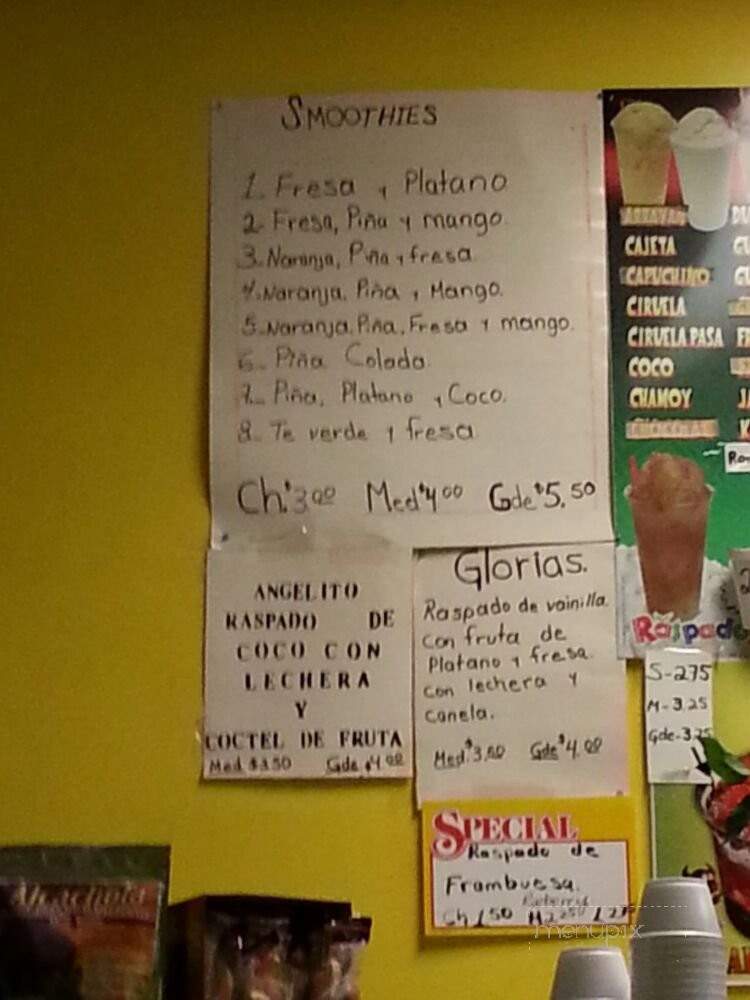 SMOOTHIES
1. Fresa y Platano
2- Fresa, Piña y mango.
3- Naranja, Piña y fresa
4. Naranja, Piña y Mango.
5- Naranja, Piña, Fresa y mango.
6- Piña Colada.
7- Piña, Platano y Coco.
8- Te verde y fresa
Ch. $3.00 Med $4.00 Gde $5.50
ANGELITO
RASPADO DE
COCO CON
LECHERA
Y
COCTEL DE FRUTA
Med $3.50 Gde $4.00
Glorias.
Raspado de vainilla
con fruta de
Platano y fresa
con lechera y
canela.
Med. $3.50 Gde $4.00
SPECIAL
Raspado de
Frambuesa.
Ch 1.50
ARRAYAN
CAJETA
CAPUCHINO
CIRUELA
CIRUELA PASA
COCO
CHAMOY
CHOCOLATE
Raspado
S-275
M-3.25
Gde-3.75
menupix